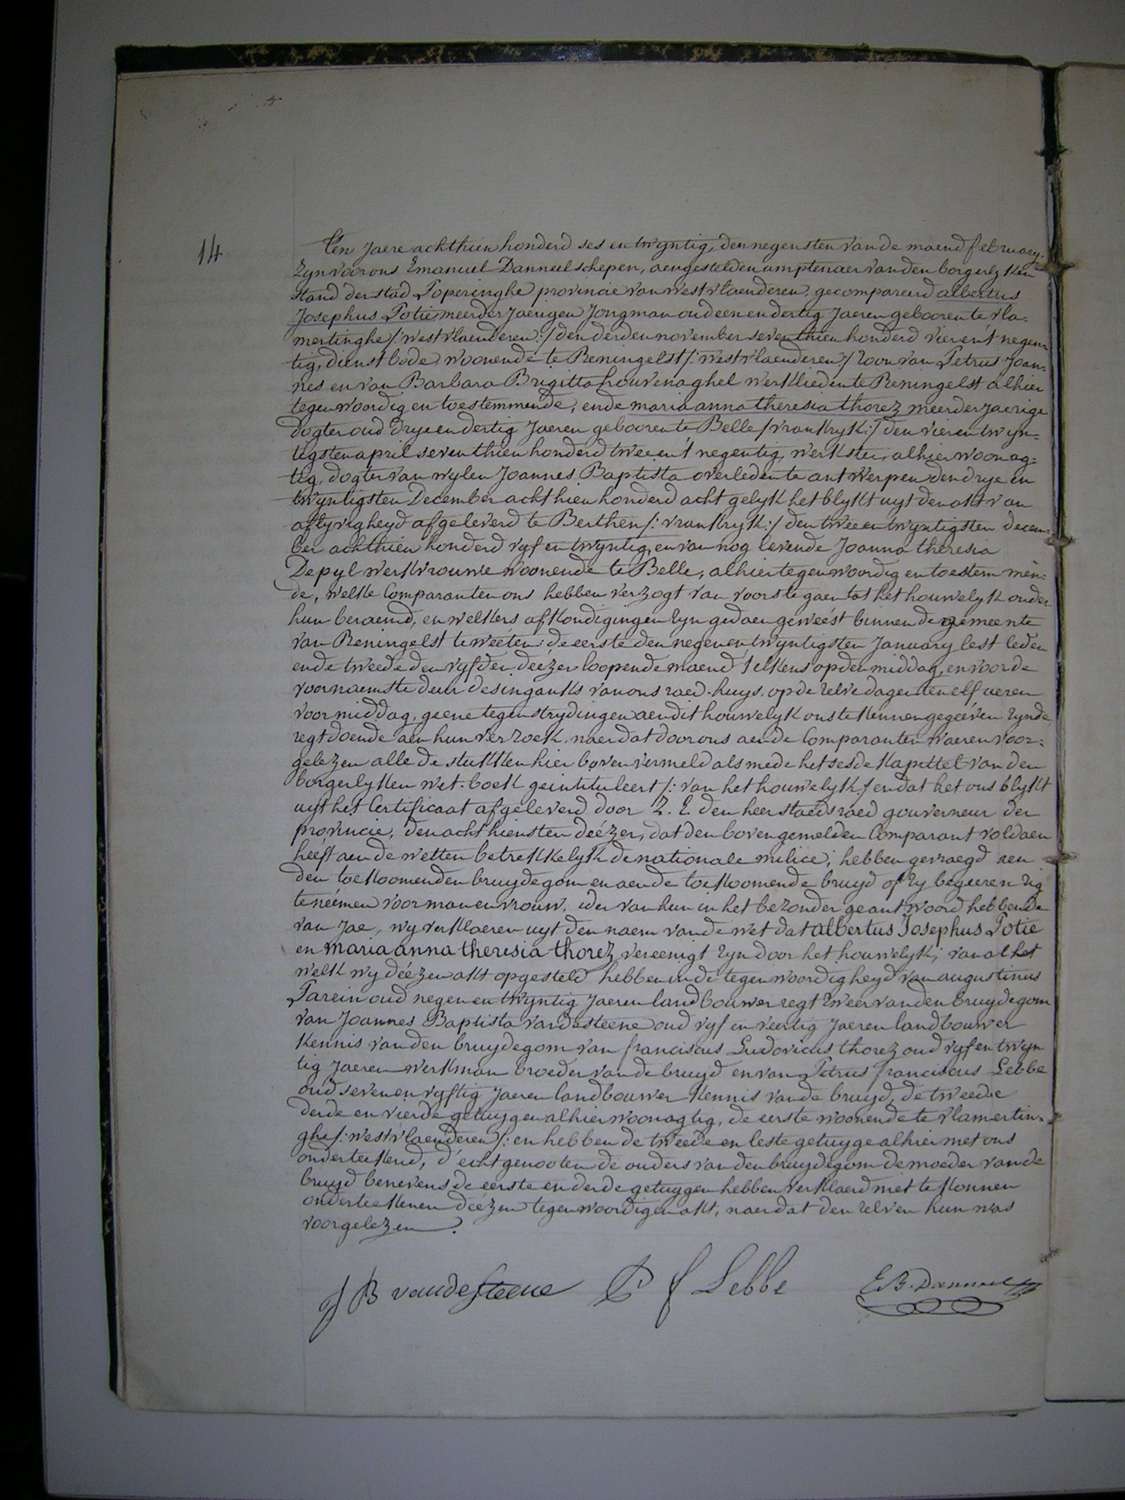 14
Ten Jaere achthien honderd ses en twyntig, den negensten van de maend february
zyn voor ons Emanuel Danneel schepen, aengestelden amptenaer van den borgerlyken
stand der stad Poperinghe provincie van westvlaenderen, gecompareerd albertus
Josephus Potie meerderjaerigen Jongman oud een en dertig Jaeren gebooren te vla-
mertinghe /:westvlaenderen:/ den derden november seventhien honderd vier en 't negen-
tig, dienstbode woonende te Reningelst /:westvlaenderen:/ zoon van Petrus Joan-
nes en van Barbara Brigitta Louvenaghel werklieden te Reningelst alhier
tegenwoordig en toestemmende; ende maria anna theresia thorez meerderjaerige
dogter oud drye en dertig Jaeren gebooren te Belle /:vrankryk:/ den vier en twyn-
tigsten april seventhien honderd twee en 't negentig, werkster, alhier woonag-
tig, dogter van wylen Joannes Baptista overleden te antwerpen den drye en
twyntigsten December achthien honderd acht gelyk het blykt uyt den akt van
aflyvigheyd afgeleverd te Berthen /:vrankryk:/ den twee en twyntigsten decem-
ber achthien honderd vyf en twyntig, en van nog levende Joanna theresia
Depyl werkvrouwe woonende te Belle, alhier tegenwoordig en toestemmen-
de, welke Comparanten ons hebben verzogt van voorts te gaen tot het houwelyk onder
hun beraemd, en welkers afkondigingen zyn gedaen geweést binnen de gemeente
van Reningelst te weeten: de eerste den negen en twyntigsten January lest leden
ende tweede den vyfden deezer loopende maend, telkens op den middag, en voor de
voornaemste deur des ingank van ons raed-huys op de zelve dagen ten elf ueren
voormiddag, geene tegenstrydingen aen dit houwelyk ons te kennen gegeéven zynde
regtdoende aen hun verzoek, naer dat door ons aen de Comparanten waeren voor-
gelezen alle de stukken hier boven vermeld als mede het sesde kapittel van den
borgerlyken wet-boek geintituleert /: van het houwelyk:/ en dat het ons blykt
uyt het Certificaat afgeleverd door Z. E. den heer staedsraed gouverneur der
provincie, den achthiensten deézer, dat den bovengemelden Comparant voldaen
heeft aen de wetten betrekkelyk de nationale milice; hebben gevraegd aen
den toekoomenden bruydegom en aen de toekoomende bruyd of zy begeeren zig
te neémen voor man en vrouw, ider van hun in het bezonder geantwoord hebbende
van Jae, wy verklaeren uyt den naem van de wet dat albertus Josephus Potie
en maria anna theresia thorez vereenigt zyn door het houwelyk; van al het
welk wy deézen akt opgesteld hebben in de tegenwoordigheyd van augustinus
Parein oud negen en twyntig Jaeren landbouwer regtzweer van den bruydegom
van Joannes Baptista vandesteene oud vyf en veertig Jaeren landbouwer
kennis van den bruydegom van franciscus Ludovicus thorez oud vyf en twyn-
tig Jaeren werkman broeder van de bruyd en van Petrus franciscus Lebbe
oud seven en vyftig Jaeren landbouwer kennis van de bruyd, de tweede
derde en vierde getuygen alhier woonagtig, de eerste woonende te vlamertin-
ghe /:westvlaenderen:/ en hebben de tweede en leste getuyge alhier met ons
onderteekend, d'echtgenooten de ouders van den bruydegom de moeder van de
bruyd benevens de eerste en derde getuygen hebben verklaerd niet te konnen
onderteekenen deézen tegenwoordigen akt, naer dat den zelven hun was
voorgelezen.
J B vandesteene P f Lebbe E. B. Danneel